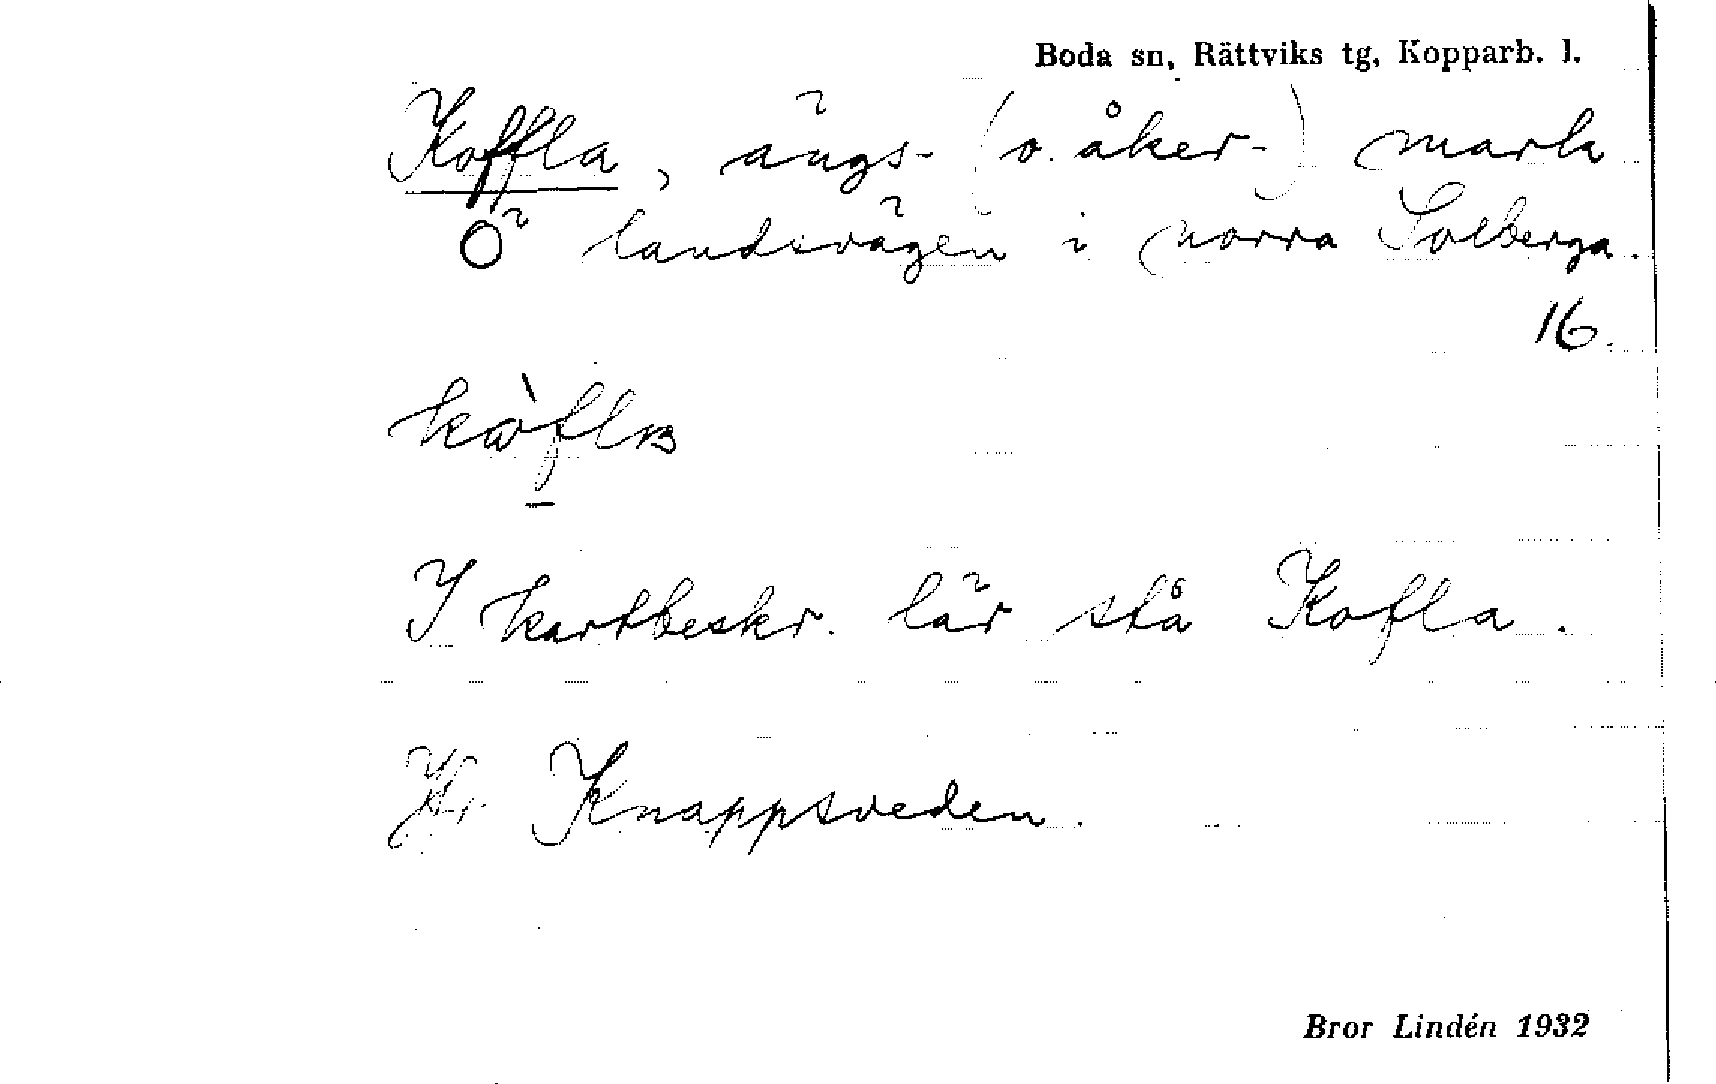 Boda sn, Rättviks tg, Kopparb. l.
Koffla, ängs- (o. åker-) mark
Ö landsvägen i norra Solberga.
16.
I kartbeskr. lär stå Kofla.
Knappsveden.
Bror Lindén 1932